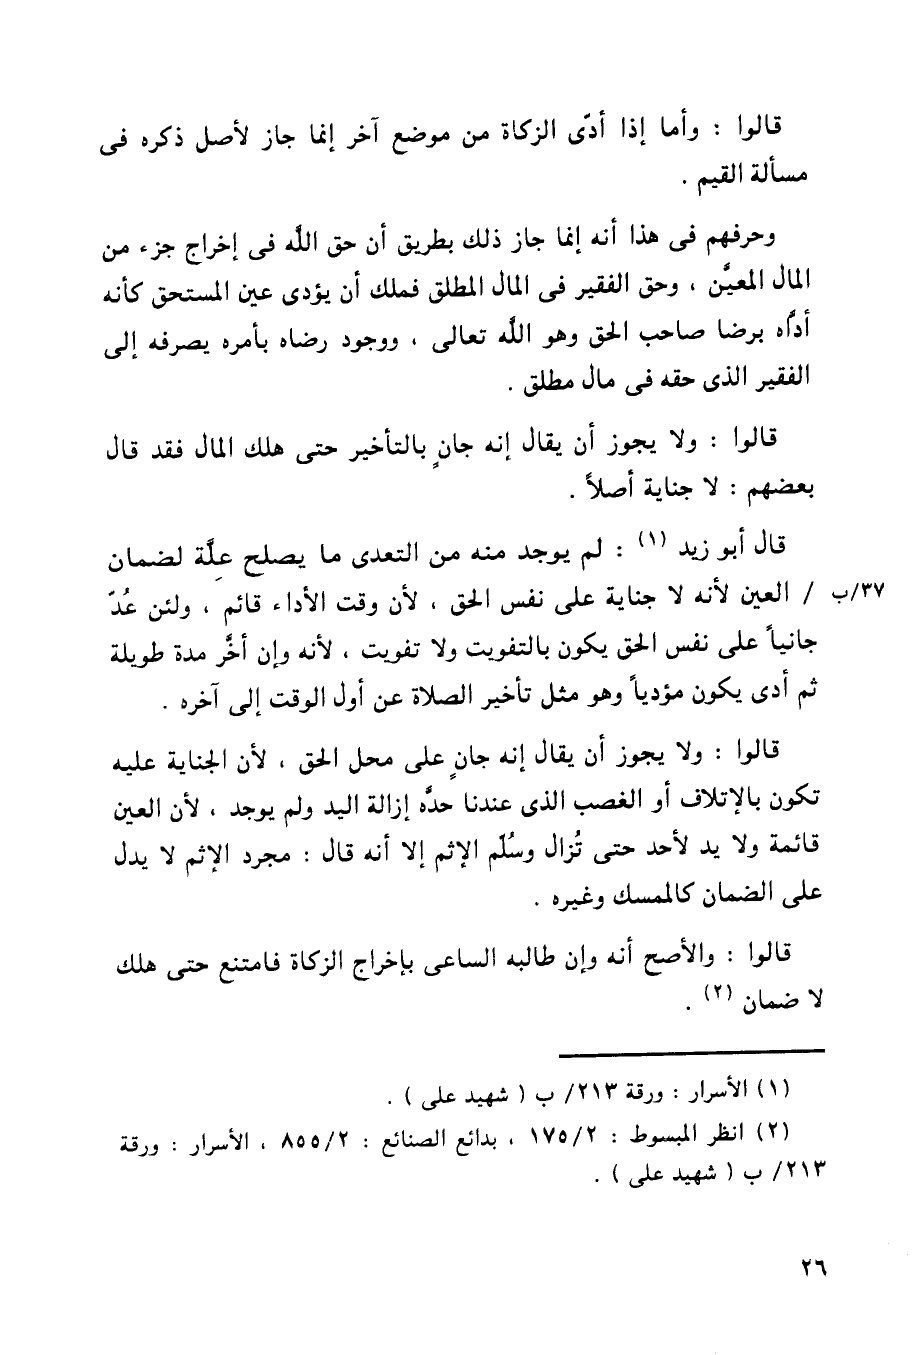 قالوا : وأما إذا أدّى الزكاة من موضع آخر إنما جاز لأصل ذكره فى
مسألة القيم .
وحرفهم فى هذا أنه إنما جاز ذلك بطريق أن حق اللَّه فى إخراج جزء من
المال المعيَّن ، وحق الفقير فى المال المطلق فملك أن يؤدى عين المستحق كأنه
أدَّاه برضا صاحب الحق وهو اللَّه تعالى ، ووجود رضاه بأمره يصرفه إلى
الفقير الذى حقه فى مال مطلق .
قالوا : ولا يجوز أن يقال إنه جانٍ بالتأخير حتى هلك المال فقد قال
بعضهم : لا جناية أصلاً .
قال أبو زيد (١) : لم يوجد منه من التعدى ما يصلح علَّة لضمان
٣٧/ب / العين لأنه لا جناية على نفس الحق ، لأن وقت الأداء قائم ، ولئن عُدّ
جانياً على نفس الحق يكون بالتفويت ولا تفويت ، لأنه وإن أخَّر مدة طويلة
ثم أدى يكون مؤدياً وهو مثل تأخير الصلاة عن أول الوقت إلى آخره .
قالوا : ولا يجوز أن يقال إنه جانٍ على محل الحق ، لأن الجناية عليه
تكون بالإتلاف أو الغصب الذى عندنا حدَّه إزالة اليد ولم يوجد ، لأن العين
قائمة ولا يد لأحد حتى تُزال وسُلّم الإثم إلا أنه قال : مجرد الإثم لا يدل
على الضمان كالممسك وغيره .
قالوا : والأصح أنه وإن طالبه الساعى بإخراج الزكاة فامتنع حتى هلك
لا ضمان (٢) .
(١) الأسرار : ورقة ٢١٣/ ب ( شهيد على ) .
(٢) انظر المبسوط : ١٧٥/٢ ، بدائع الصنائع : ٨٥٥/٢ ، الأسرار : ورقة
٢١٣/ ب ( شهيد على ) .
٢٦